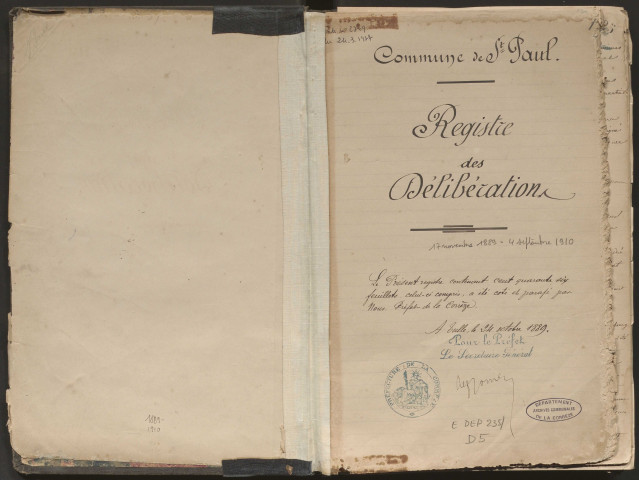 1889-
1910
24.3.1987
Commune de St Paul.
Registre
des
Délibérations
17 novembre 1889 - 4 septembre 1910
Le Présent registre contenant cent quarante six
feuillets, celui-ci compris, a été coté et parafé par
Nous Préfet de la Corrèze.
A Tulle, le 24 octobre 1889.
Pour le Préfet
Le Secrétaire Général
PRÉFECTURE DE LA CORRÈZE
DÉPARTEMENT
ARCHIVES COMMUNALES
DE LA CORREZE
E DEP 235/
D5